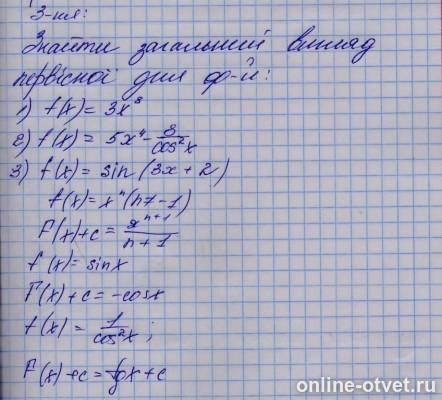 З-ня:
Знайти загальний вигляд
первісної для ф-й:
1) f(x) = 3x⁸
2) f(x) = 5x⁴ - 8/cos²x
3) f(x) = sin(3x + 2)
f(x) = xⁿ (n≠-1)
F(x)+c = xⁿ⁺¹/n+1
f(x) = sinx
F(x)+c = -cosx
f(x) = 1/cos²x ;
F(x)+c = tgx + c
online-otvet.ru